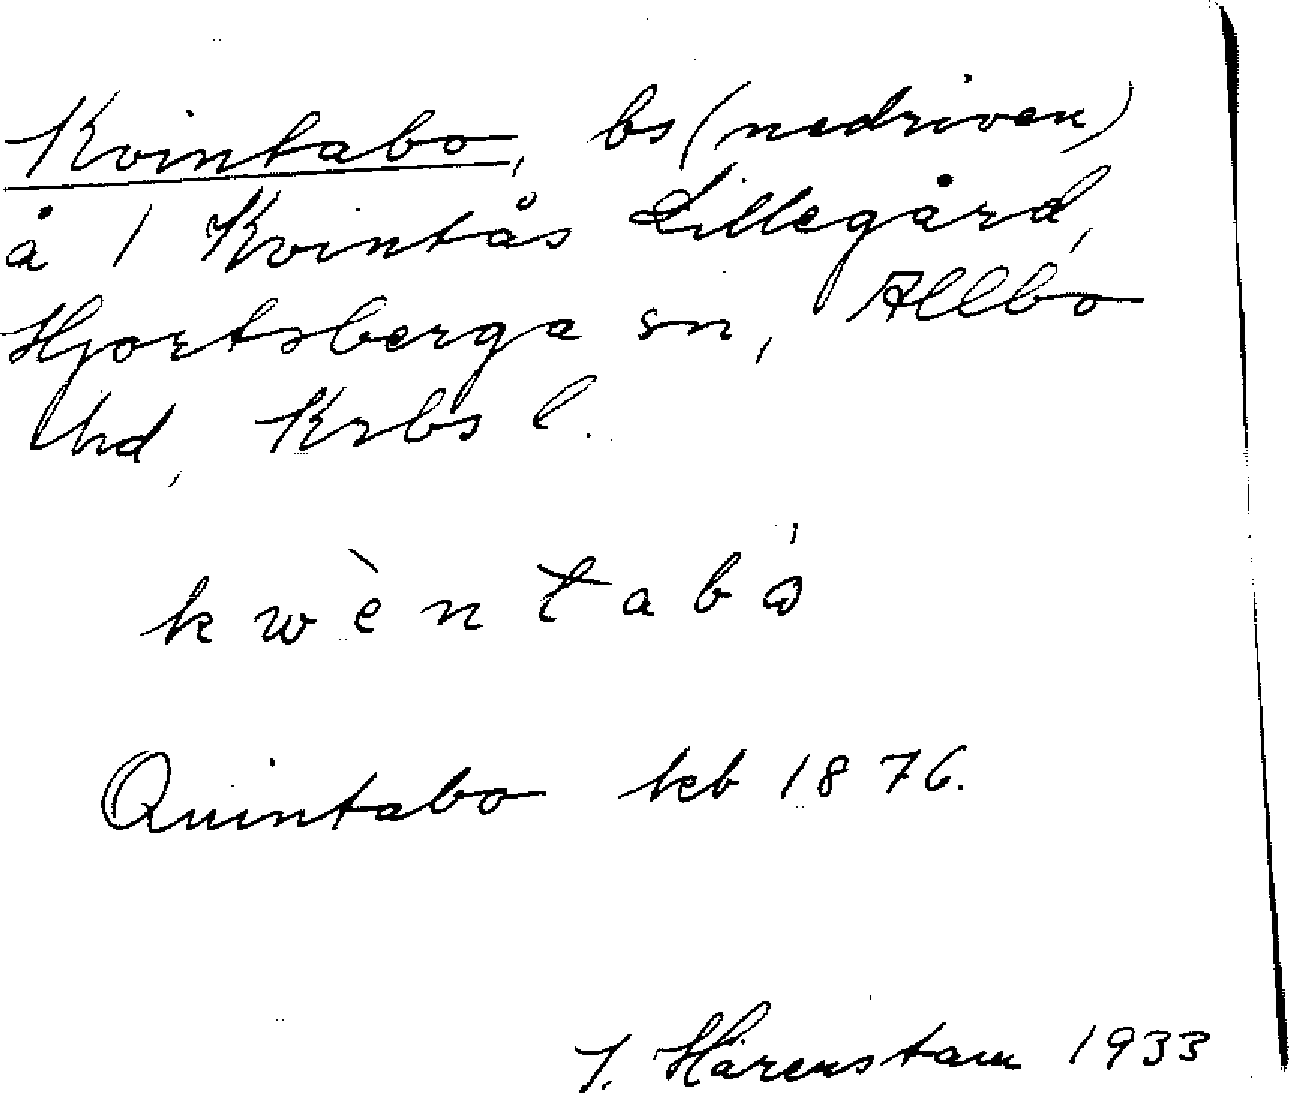 Kvintabo, bs (nedriven)
å 1 Kvintås Lillegård,
Hjortsberga sn, Allbo
hd, Krbs l.
kwèntabó
Quintabo kb 1876.
J. Härenstam 1933